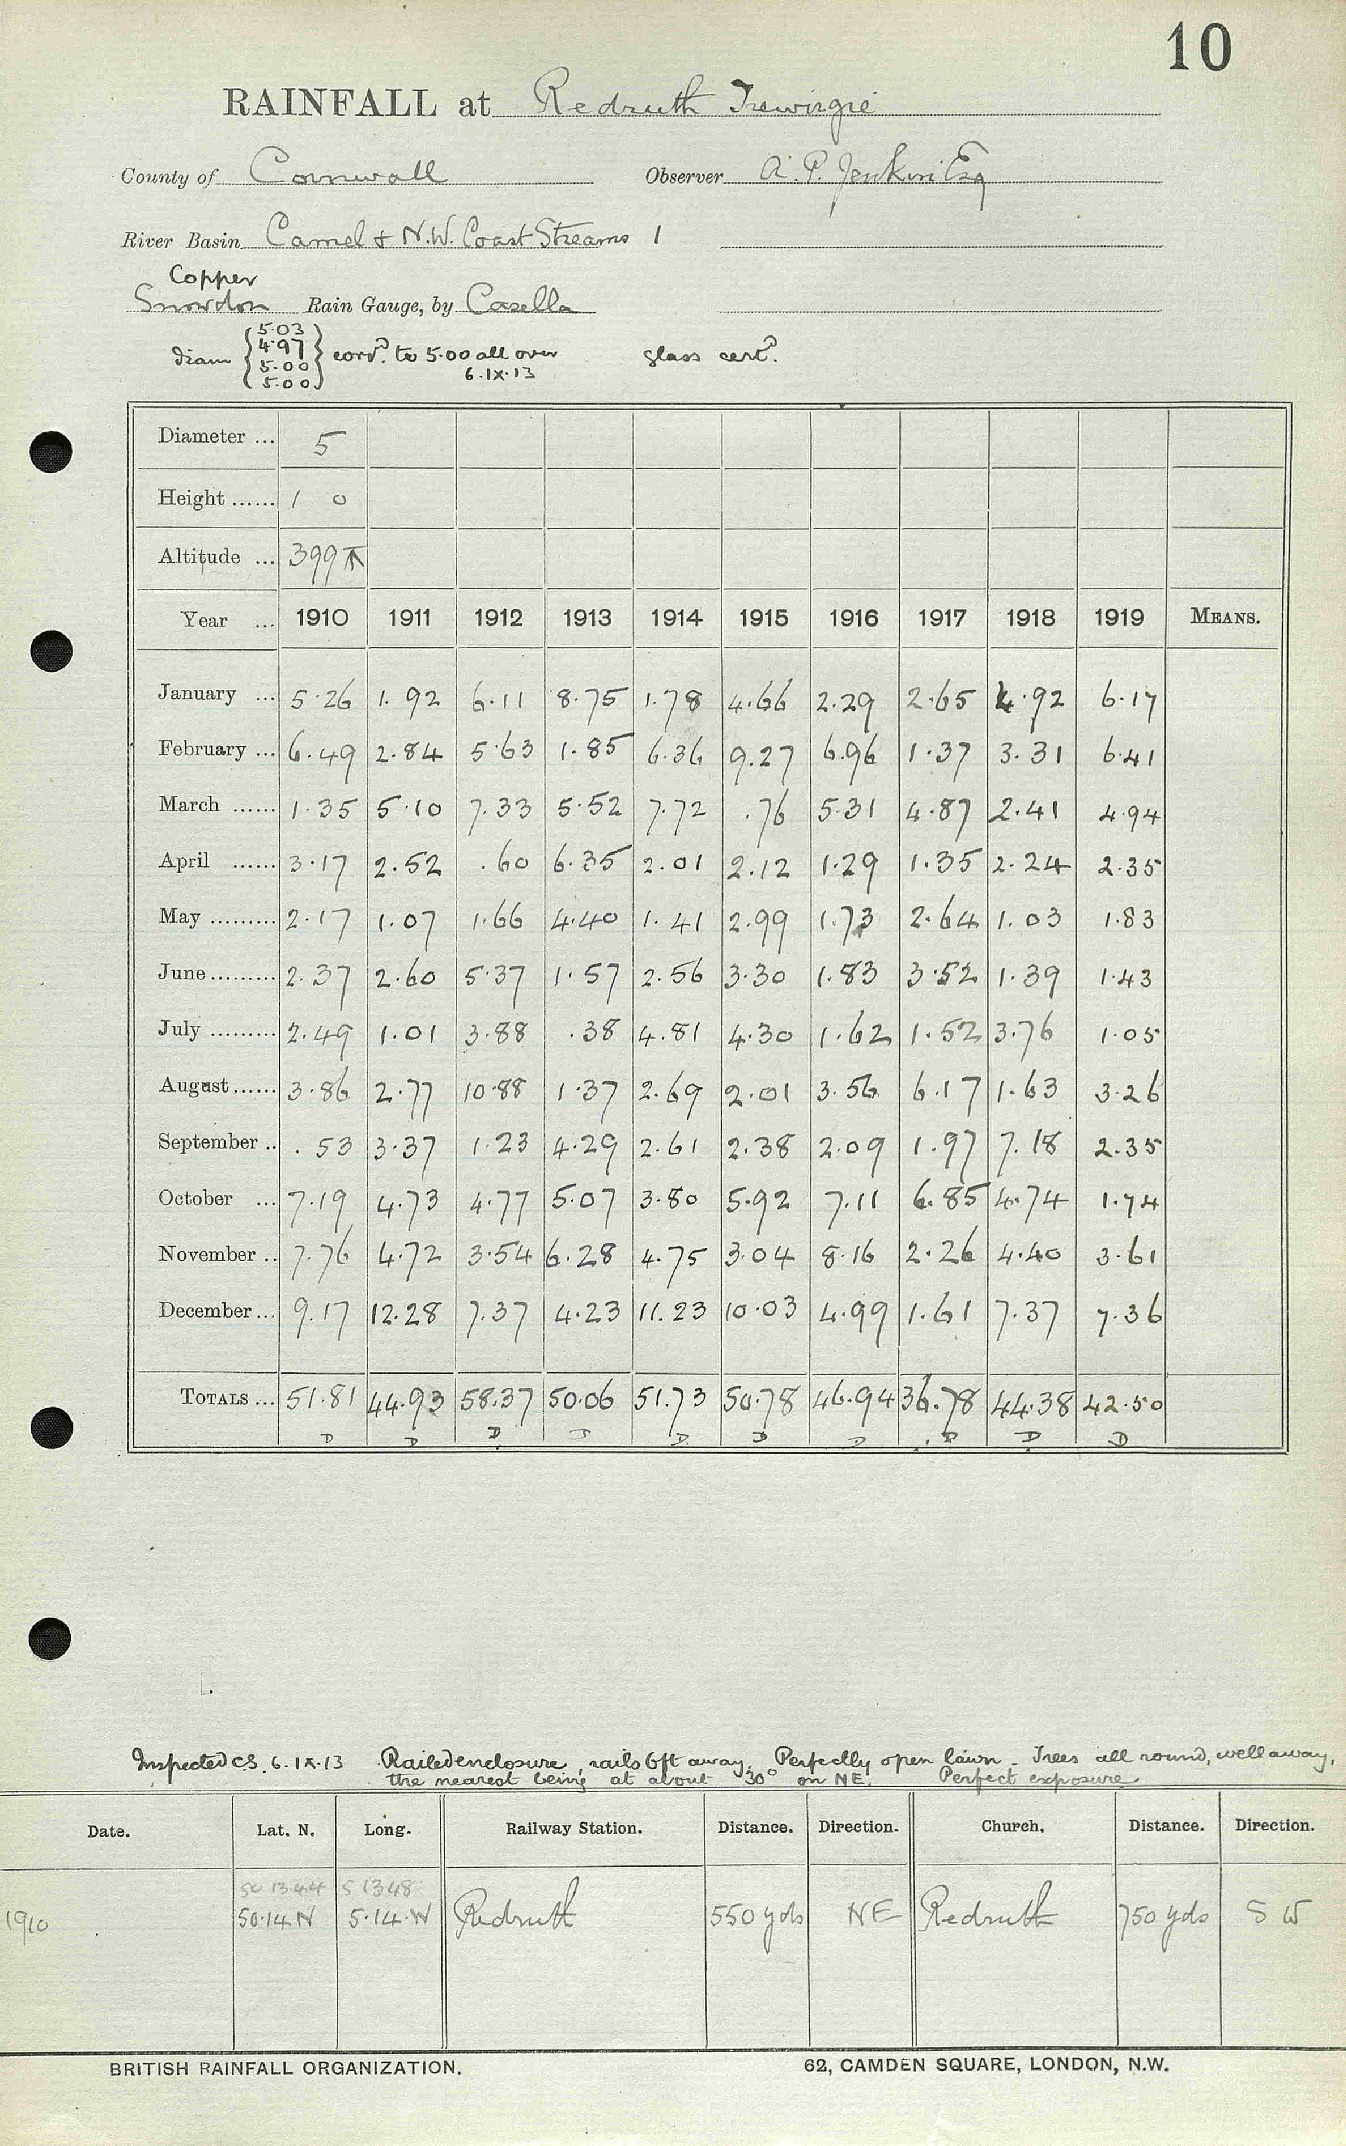 10
RAINFALL at Redruth Trewirgie
County of Cornwall Observer A. P. Jenkin Esq
River Basin Camel & N.W. Coast Streams 1
Copper
Snowdon Rain Gauge, by Casella
diam { 5.03 4.97 5.00 5.00 } corrd. to 5.00 all over glass certd.
6.IX.13
Diameter ... 5
Height ...... 1 0
Altitude ... 399
Year ... 1910 1911 1912 1913 1914 1915 1916 1917 1918 1919 MEANS.
January ... 5.26 1.92 6.11 8.75 1.78 4.66 2.29 2.65 4.92 6.17
February ... 6.49 2.84 5.63 1.85 6.36 9.27 6.96 1.37 3.31 6.41
March ...... 1.35 5.10 7.33 5.52 7.72 .76 5.31 4.87 2.41 4.94
April ...... 3.17 2.52 .60 6.35 2.01 2.12 1.29 1.35 2.24 2.35
May ......... 2.17 1.07 1.66 4.40 1.41 2.99 1.73 2.64 1.03 1.83
June ......... 2.37 2.60 5.37 1.57 2.56 3.30 1.83 3.52 1.39 1.43
July ......... 2.49 1.01 3.88 .38 4.81 4.30 1.62 1.52 3.76 1.05
August ...... 3.86 2.77 10.88 1.37 2.69 2.01 3.56 6.17 1.63 3.26
September .. .53 3.37 1.23 4.29 2.61 2.38 2.09 1.97 7.18 2.35
October ... 7.19 4.73 4.77 5.07 3.80 5.92 7.11 6.85 4.74 1.74
November .. 7.76 4.72 3.54 6.28 4.75 3.04 8.16 2.26 4.40 3.61
December ... 9.17 12.28 7.37 4.23 11.23 10.03 4.99 1.61 7.37 7.36
TOTALS ... 51.81 44.93 58.37 50.06 51.73 50.78 46.94 36.78 44.38 42.50
D D D D D D D D D D
Inspected CS. 6.IX.13 Railed enclosure, rails 6ft away. Perfectly open lawn. Trees all round, well away,
the nearest being at about 30° on NE. Perfect exposure
Date. Lat. N. Long. Railway Station. Distance. Direction. Church. Distance. Direction.
50 13 44 5 13 48
1910 50.14 N 5.14.W Redruth 550 yds NE Redruth 750 yds S W
BRITISH RAINFALL ORGANIZATION. 62, CAMDEN SQUARE, LONDON, N.W.